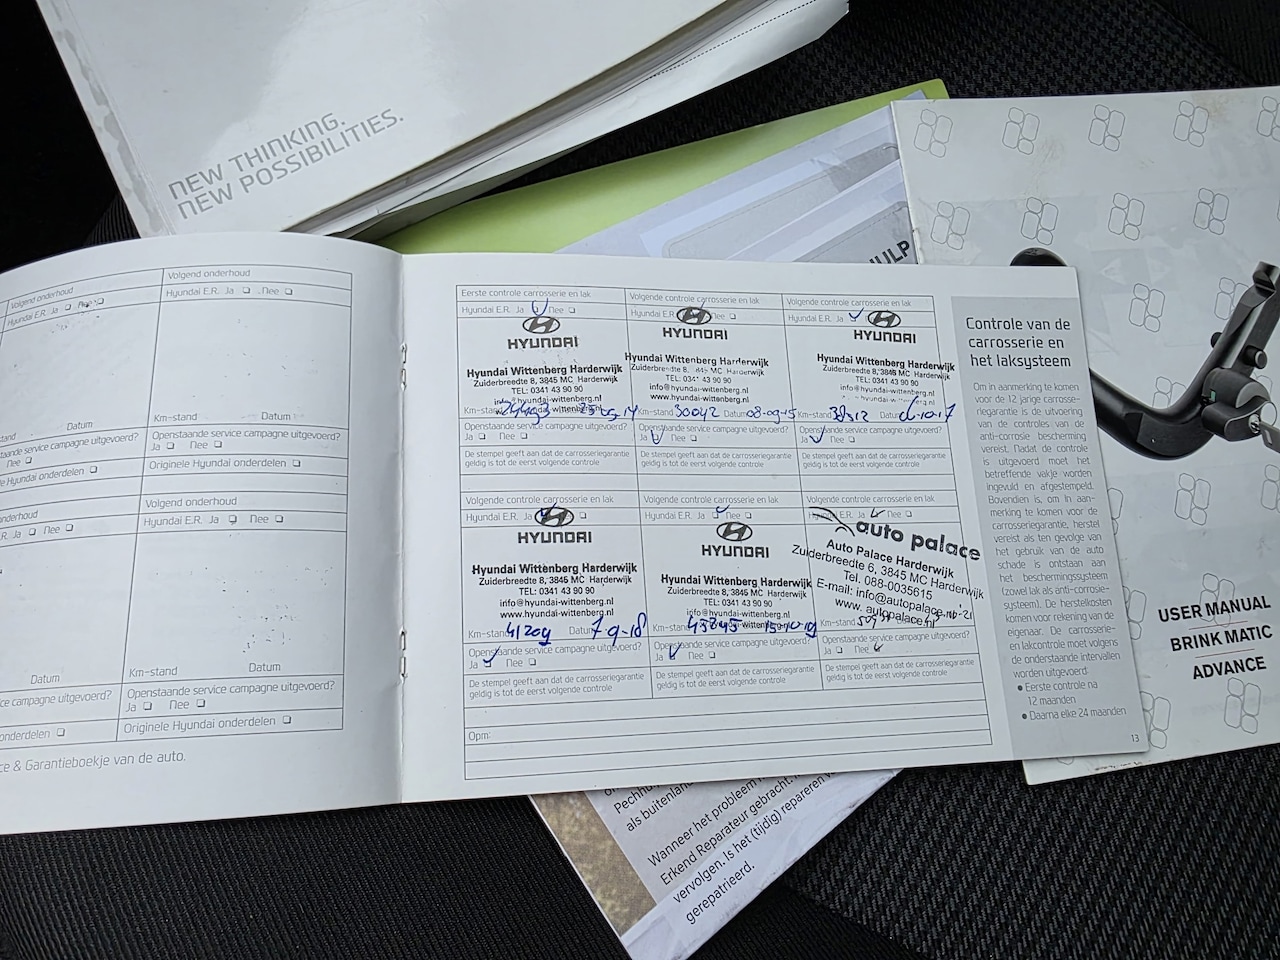 NEW THINKING.
NEW POSSIBILITIES.
HULP
Volgend onderhoud
Hyundai E.R. Ja Nee
Volgend onderhoud
Hyundai E.R. Ja Nee
Datum
Km-stand Datum
service campagne uitgevoerd?
Nee
Openstaande service campagne uitgevoerd?
Ja Nee
Hyundai onderdelen
Originele Hyundai onderdelen
onderhoud
Ja Nee
Volgend onderhoud
Hyundai E.R. Ja Nee
Datum
Km-stand Datum
campagne uitgevoerd?
Openstaande service campagne uitgevoerd?
Ja Nee
onderdelen
Originele Hyundai onderdelen
& Garantieboekje van de auto.
Eerste controle carrosserie en lak
Hyundai E.R. Ja Nee
HYUNDAI
Hyundai Wittenberg Harderwijk
Zuiderbreedte 8, 3845 MC Harderwijk
TEL: 0341 43 90 90
Km-stand
Openstaande service campagne uitgevoerd?
Ja Nee
De stempel geeft aan dat de carrosseriegarantie
geldig is tot de eerst volgende controle
Volgende controle carrosserie en lak
Hyundai E.R. Nee
HYUNDAI
Hyundai Wittenberg Harderwijk
Zuiderbreedte 8, 3845 MC Harderwijk
TEL: 0341 43 90 90
info@hyundai-wittenberg.nl
www.hyundai-wittenberg.nl
Km-stand 30042 Datum 08-09-15
Openstaande service campagne uitgevoerd?
Ja Nee
De stempel geeft aan dat de carrosseriegarantie
geldig is tot de eerst volgende controle
Volgende controle carrosserie en lak
Hyundai E.R. Ja
HYUNDAI
Hyundai Wittenberg Harderwijk
Zuiderbreedte 8, 3845 MC Harderwijk
TEL: 0341 43 90 90
info@hyundai-wittenberg.nl
Km-stand Datum
Openstaande service campagne uitgevoerd?
Ja Nee
De stempel geeft aan dat de carrosseriegarantie
geldig is tot de eerst volgende controle
Volgende controle carrosserie en lak
Hyundai E.R. Ja
HYUNDAI
Hyundai Wittenberg Harderwijk
Zuiderbreedte 8, 3845 MC Harderwijk
TEL: 0341 43 90 90
info@hyundai-wittenberg.nl
www.hyundai-wittenberg.nl
Km-stand 41209 Datum 7-9-18
Openstaande service campagne uitgevoerd?
Ja Nee
De stempel geeft aan dat de carrosseriegarantie
geldig is tot de eerst volgende controle
Volgende controle carrosserie en lak
Hyundai E.R. Ja Nee
HYUNDAI
Hyundai Wittenberg Harderwijk
Zuiderbreedte 8, 3845 MC Harderwijk
TEL: 0341 43 90 90
info@hyundai-wittenberg.nl
www.hyundai-wittenberg.nl
Km-stand 45845 15-10-19
Openstaande service campagne uitgevoerd?
Ja Nee
De stempel geeft aan dat de carrosseriegarantie
geldig is tot de eerst volgende controle
Volgende controle carrosserie en lak
Ja Nee
auto palace
Auto Palace Harderwijk
Zuiderbreedte 6, 3845 MC Harderwijk
Tel. 088-0035615
E-mail: info@autopalace.nl
www.autopalace.nl
Km-stand
Openstaande service campagne uitgevoerd?
Ja Nee
De stempel geeft aan dat de carrosseriegarantie
geldig is tot de eerst volgende controle
Opm:
Controle van de
carrosserie en
het laksysteem
Om in aanmerking te komen
voor de 12 jarige carrosse-
riegarantie is de uitvoering
van de controles van de
anti-corrosie bescherming
vereist. Nadat de controle
is uitgevoerd moet het
betreffende vakje worden
ingevuld en afgestempeld.
Bovendien is, om in aan-
merking te komen voor de
carrosseriegarantie, herstel
vereist als ten gevolge van
het gebruik van de auto
schade is ontstaan aan
het beschermingssysteem
(zowel lak als anti-corrosie-
systeem). De herstelkosten
komen voor rekening van de
eigenaar. De carrosserie-
en lakcontrole moet volgens
de onderstaande intervallen
worden uitgevoerd:
• Eerste controle na
12 maanden
• Daarna elke 24 maanden
13
USER MANUAL
BRINK MATIC
ADVANCE
als buitenland
Wanneer het probleem
Erkend Reparateur gebracht.
vervolgen. Is het (tijdig) repareren
gerepatrieerd.